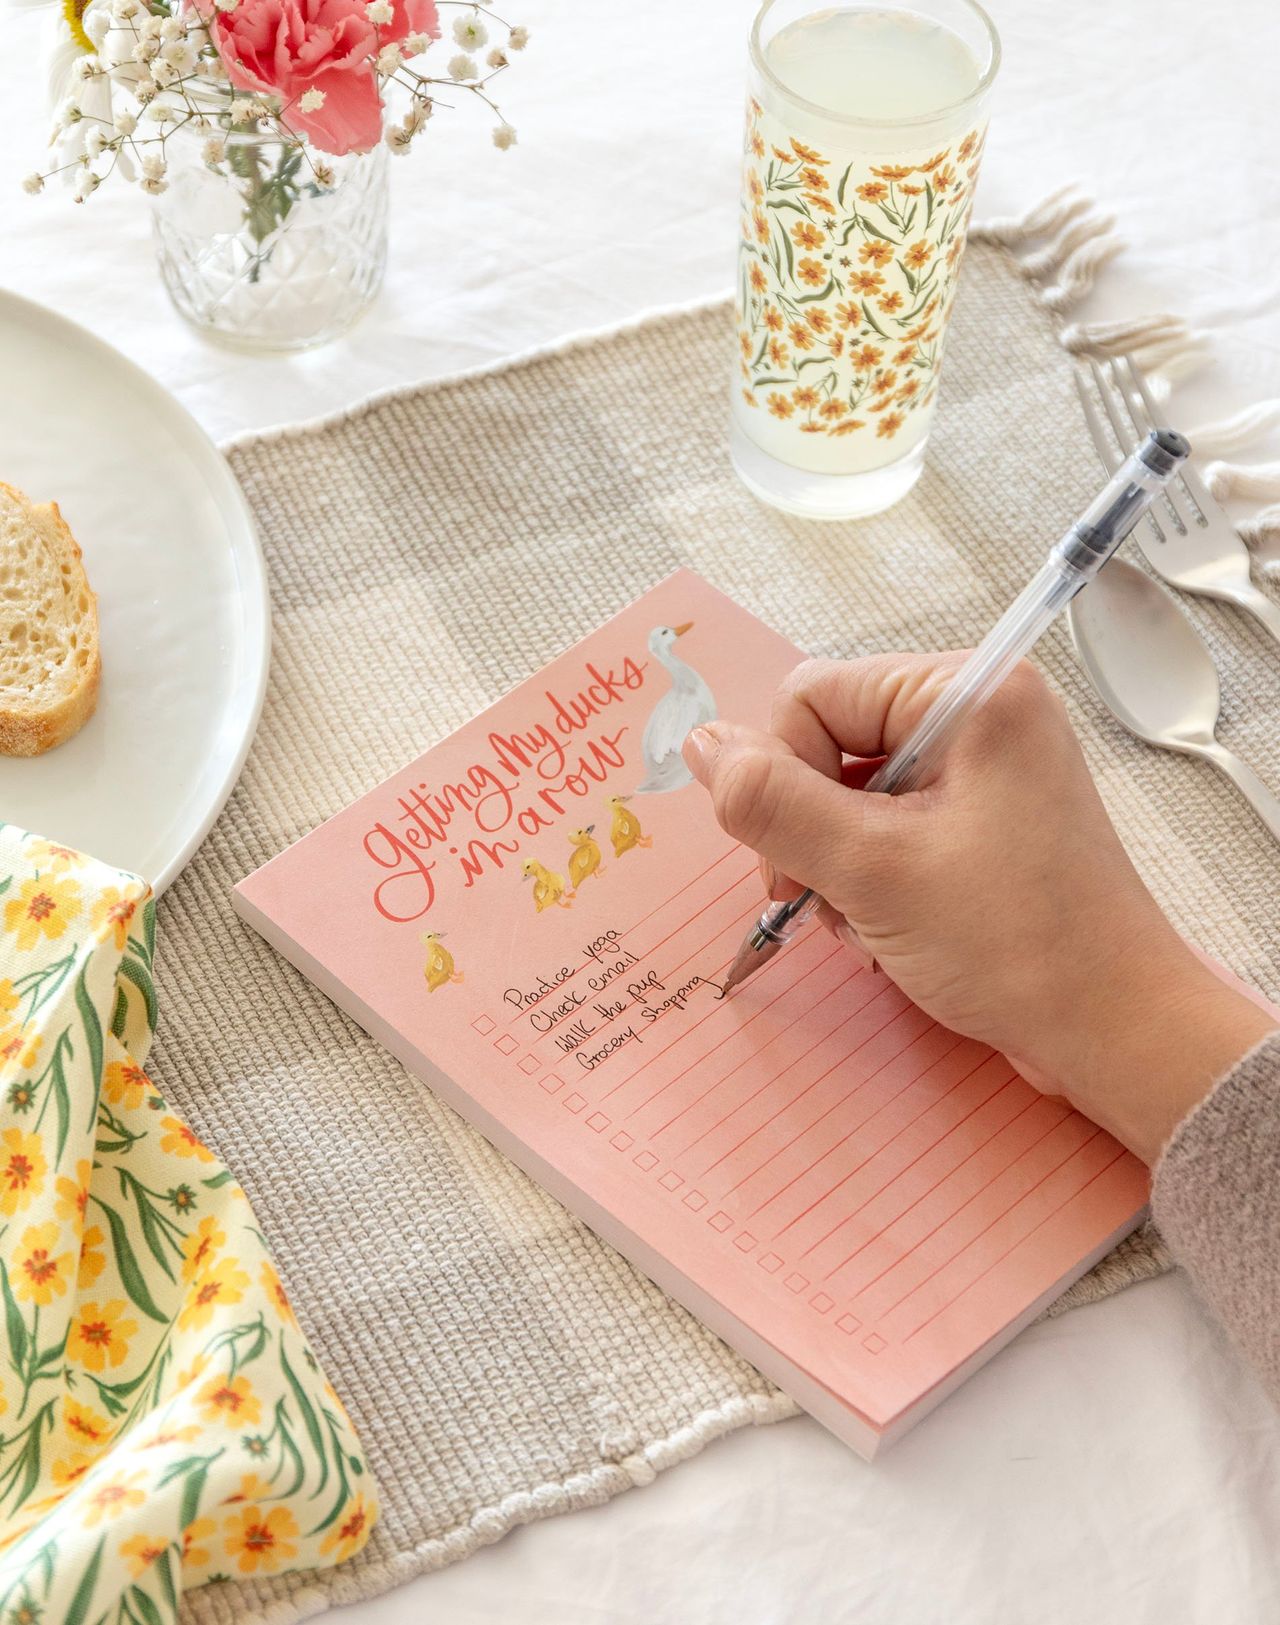 getting my ducks
in a row
Practice yoga
Check email
Walk the pup
Grocery shopping